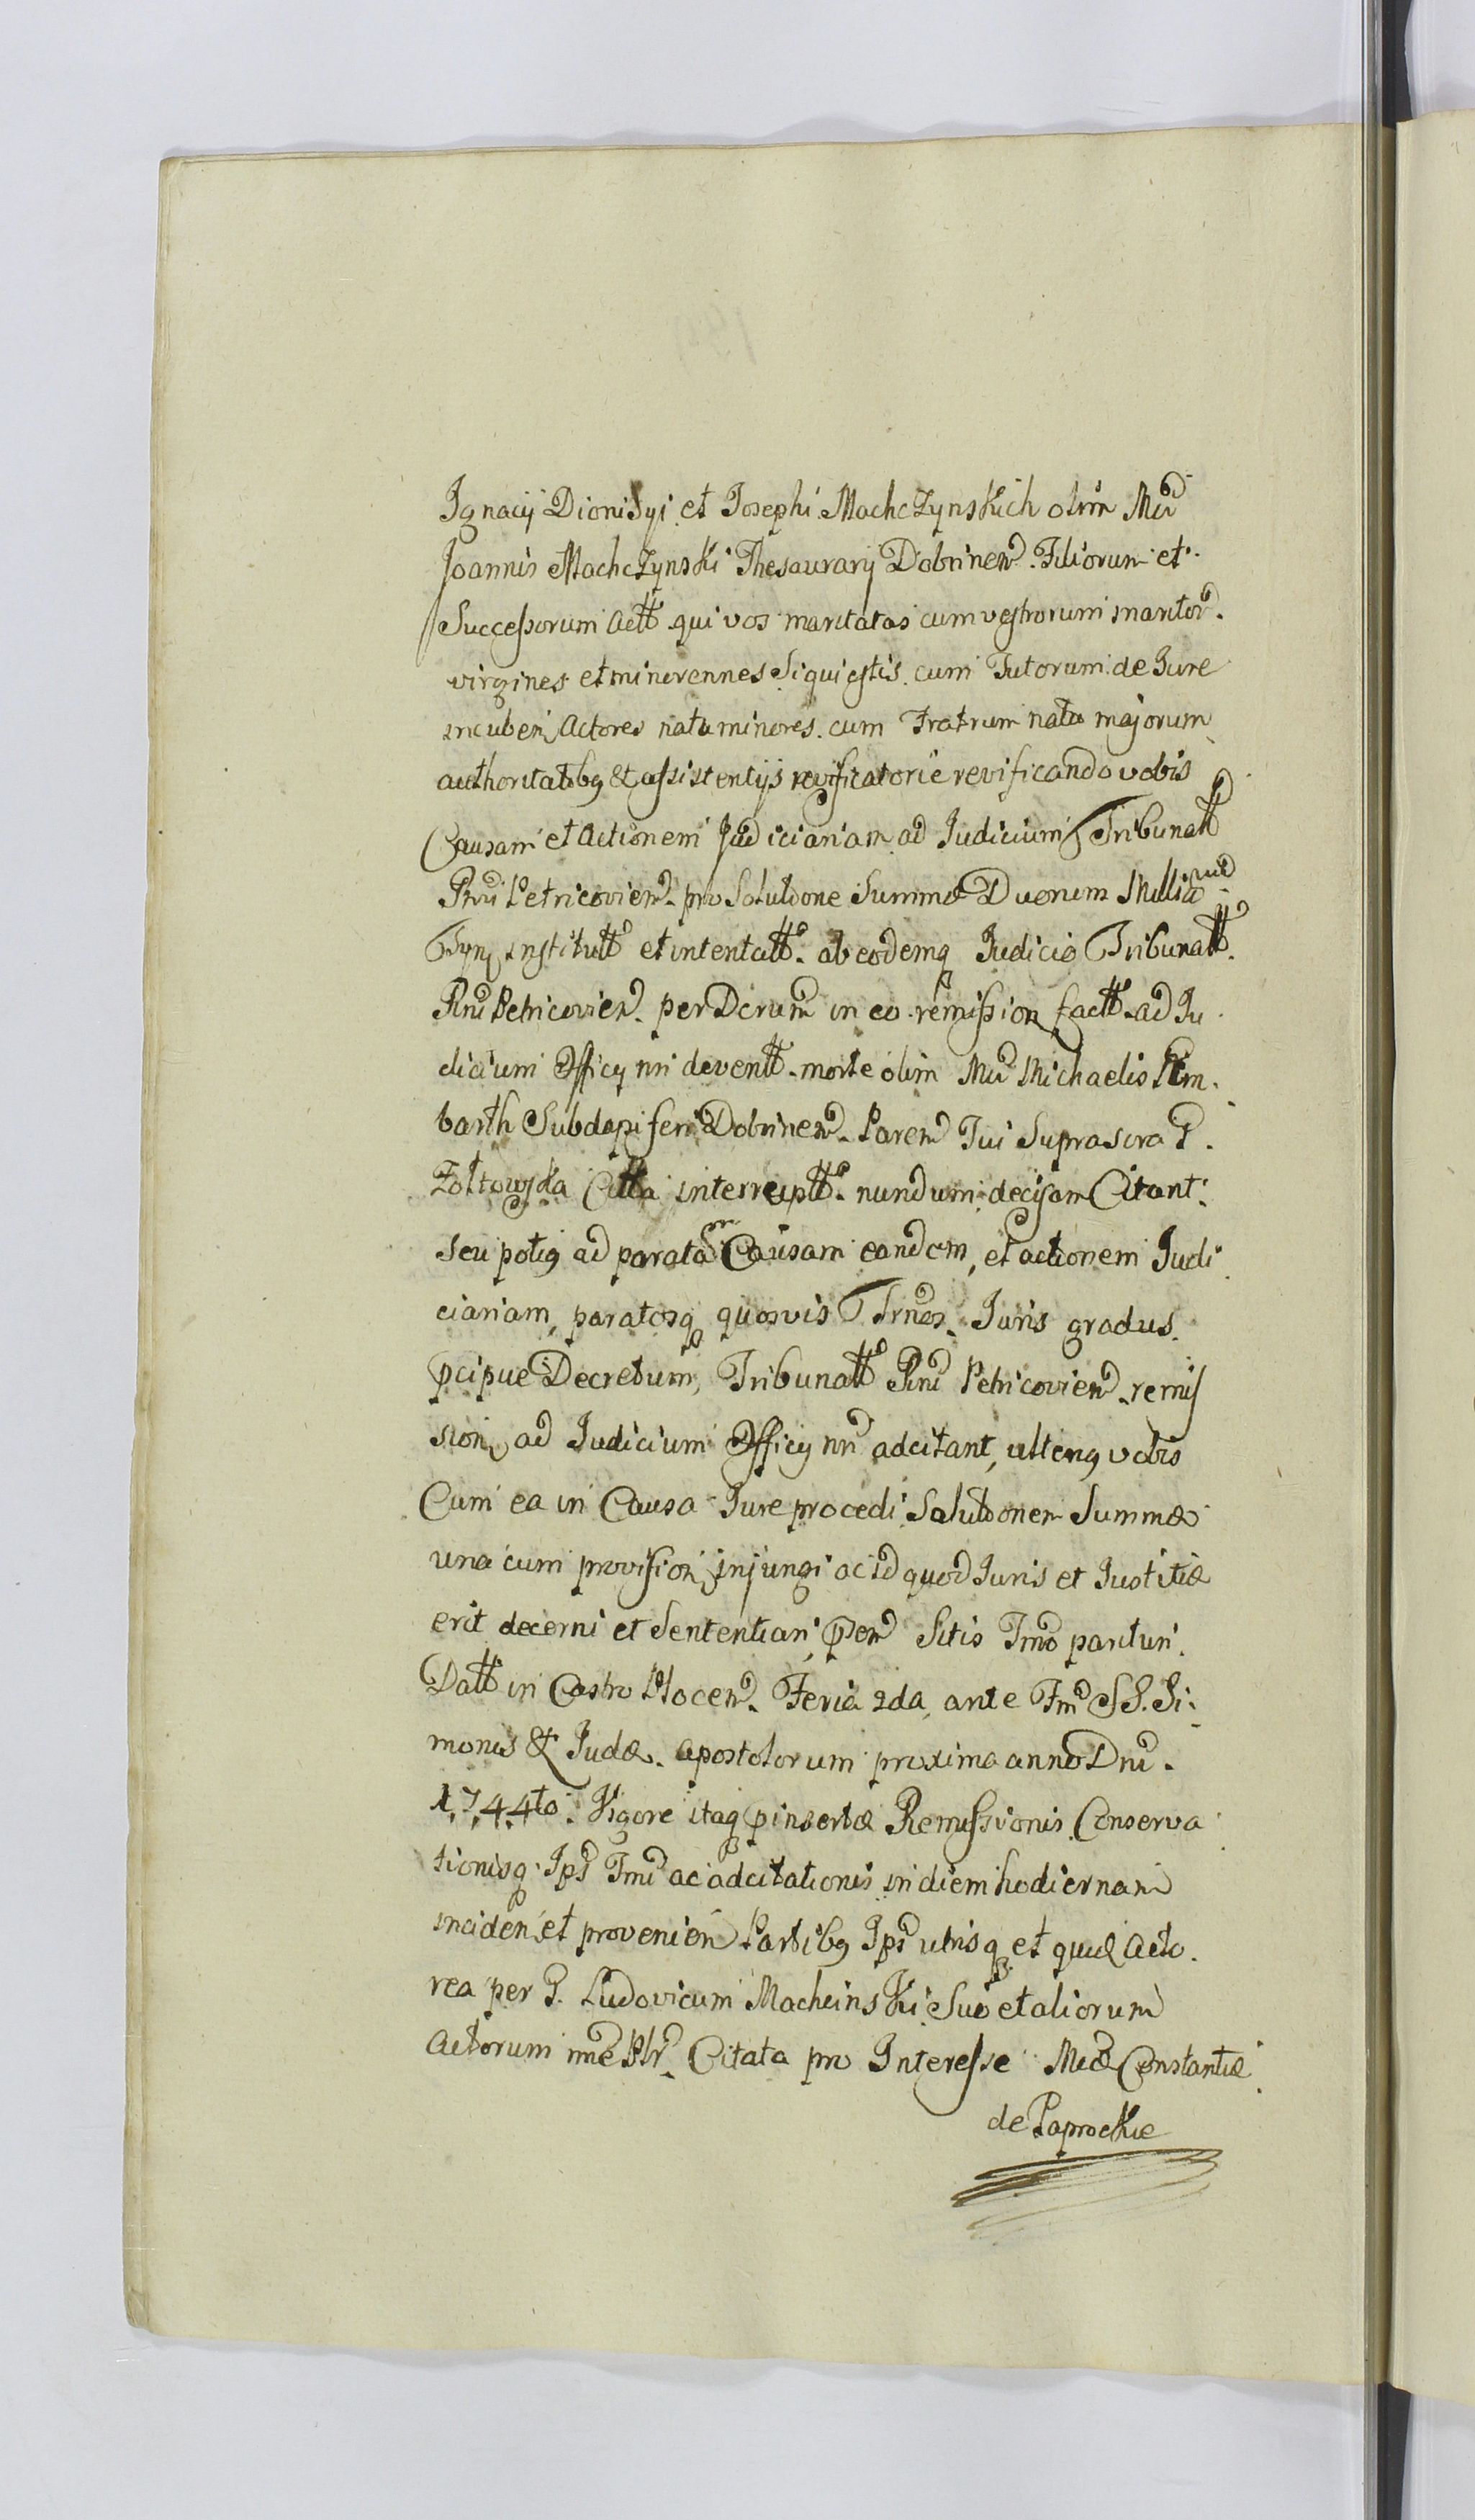 Ignacij Dionisyi et Josephi Machczynskich olim Mci
Joannis Machczynski Thesaurarij Dobrinen. Filiorum et
Successorum Actt qui vos maritatas cum vestrorum maritor.
virgines et minorennes si qui estis cum Tutorum de Jure
incuben Actores natu minores cum Fratrum natu majorum
authoritatibq & assistentijs revificatorie revificando vobis
Causam et Actionem Judiciariam ad Judicium Tribunatt
Rni Petricovien. pro Solutione Summae Duorum Millia
Tynf institutt et intentatt. ab eodemq Judicio Tribunatt.
Rni Petricovien. per Dcrum in eo remission factt. ad Ju
dicium Officij nri deventt. morte olim Mci Michaelis
barth Subdapiferi Dobrinen. Paren Tui Suprascra G.
Żołtowska Citta interreptt. nundum decisam Citant
seu potiq ad paratam Causam eandem, et actionem Judi
ciariam, paratosq quosvis Trnos. Juris gradus.
pcipue Decretum, Tribunatt Rni Petricovien. remis
sion, ad Judicium Officij nri adcitant, ulteriq vobis
Cum ea in Causa Jure procedi Solutionem Summae
una cum provision, injungi ac id quod Juris et Justitiae
erit decerni et Sententiari, Sitis Tmo parituri.
Datt in Castro Plocen. Feria 2da, ante Fm SS. Si
monis & Judae. Apostolorum proxima anno Dni.
1744to. Vigore itaq pinsertae Remissionis Conserva
tionisq Ipi Tmi ac adcitationis in diem hodiernam
inciden, et provenien Partibq Ipi utrisq et quid Acto
rea per G. Ludovicum Machcinski Suo et aliorum
Actorum nne Citata pro Interesse Mcae Constantiae
de Paprockie